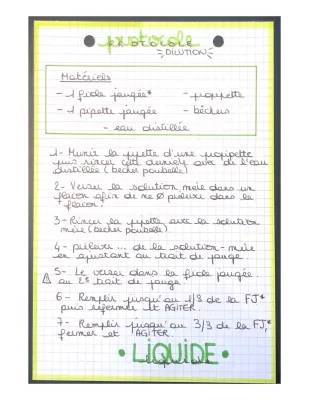 protocole
PROTOCOLE
DILUTION
Matériels
- 1 fiole jaugée* - propipette
- 1 pipette jaugée - béchers
- eau distillée
1- Munir la pipette d'une propipette
puis rincer cette dernière avec de l'eau
distillée (becher poubelle)
2- Verser la solution mère dans un
flacon afin de ne Ø prélever dans le
flacon.
3- Rincer la pipette avec la solution
mère (becher poubelle)
4- prélever ... de la solution-mère
en ajustant au trait de jauge.
5- Le verser dans la fiole jaugée
au 2è trait de jauge
6- Remplir jusqu'au 1/3 de la FJ*
puis refermer et AGITER.
7- Remplir jusqu'au 3/3 de la FJ*,
fermer et AGITER.
• LIQUIDE •